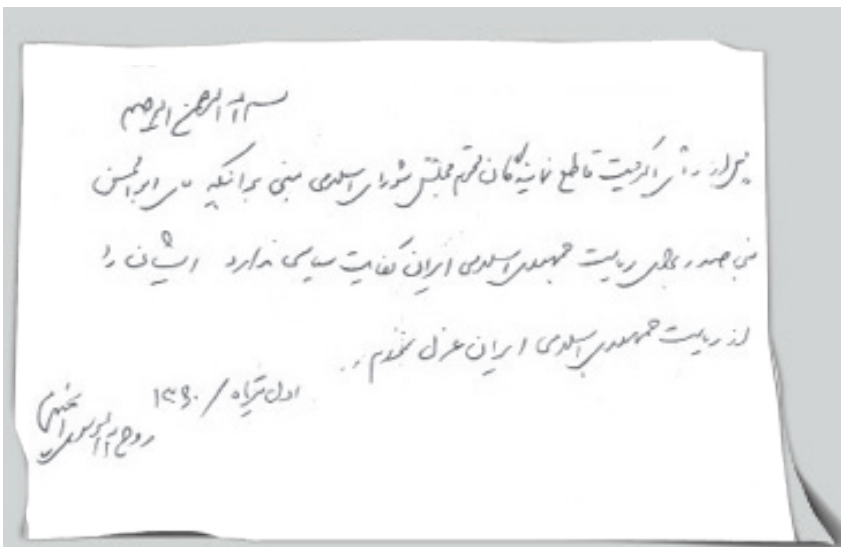 بسم الله الرحمن الرحیم
پس از رأی اکثریت قاطع نمایندگان محترم مجلس شورای اسلامی مبنی بر آنکه آقای ابوالحسن
بنی صدر برای ریاست جمهوری اسلامی ایران کفایت سیاسی ندارد ایشان را
از ریاست جمهوری اسلامی ایران عزل نمودم.
اول تیرماه / ۱۳۶۰
روح الله الموسوی الخمینی